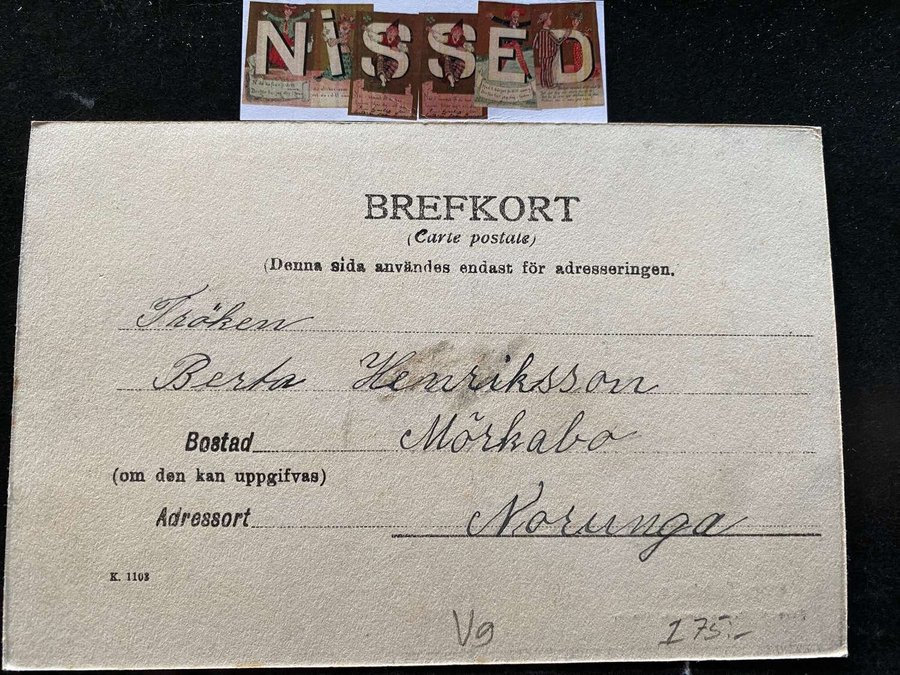 NISSED
BREFKORT
(Carte postale)
(Denna sida användes endast för adresseringen.
Fröken
Berta Henriksson
Bostad Mörkabo
(om den kan uppgifvas)
Adressort Norunga
K. 1103
Vg 175:-